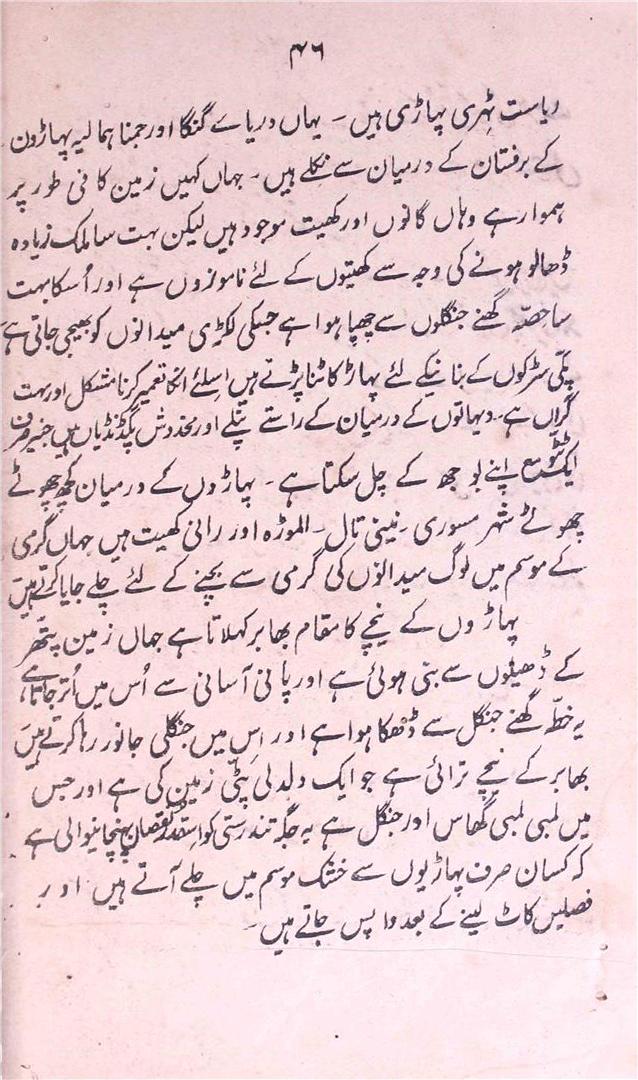 ۴۶
ریاست ٹہری پہاڑی ہیں ۔ یہاں دریاے گنگا اور جمنا ہمالیہ پہاڑون
کے برفستان کے درمیان سے نکلے ہیں ۔ جہاں کہیں زمین کافی طور پر
ہموار ہے وہاں گانوں اور کھیت موجود ہیں لیکن بہت سا ملک زیادہ
ڈھالو ہونے کی وجہ سے کھیتوں کے لئے ناموزوں ہے اور اُسکا بہت
سا حصّہ گھنے جنگلوں سے چھپا ہوا ہے جسکی لکڑی میدانوں کو بھیجی جاتی ہے
پکّی سڑکوں کے بنانیکے لئے پہاڑ کاٹنا پڑتے ہیں اسلئے انکا تعمیر کرنا مشکل اور بہت
گراں ہے ۔ دیہاتوں کے درمیان کے راستے پتلے اور مخدوش پگڈنڈیاں ہیں جنپر صرف
ایک ٹٹّو مع اپنے بوجھ کے چل سکتا ہے ۔ پہاڑوں کے درمیان کچھ چھوٹے
چھوٹے شہر مسوری ۔ نینی تال ۔ الموڑہ اور رانی کھیت ہیں جہاں گرمی
کے موسم میں لوگ میدانوں کی گرمی سے بچنے کے لئے چلے جایا کرتے ہیں
پہاڑوں کے نیچے کا مقام بھابر کہلاتا ہے جہاں زمین پتّھر
کے ڈھیلوں سے بنی ہوئی ہے اور پانی آسانی سے اُس میں اُتر جاتا ہے
یہ خطّہ گھنے جنگل سے ڈھکا ہوا ہے اور اِس میں جنگلی جانور رہا کرتے ہیں
بھابر کے نیچے ترائی ہے جو ایک دلدلی پٹّی زمین کی ہے اور جس
میں لمبی لمبی گھاس اور جنگل ہے یہ جگہ تندرستی کو اسقدر نقصان پہنچانیوالی ہے
کہ کسان صرف پہاڑیوں سے خشک موسم میں چلے آتے ہیں اور
فصلیں کاٹ لینے کے بعد واپس جاتے ہیں ۔